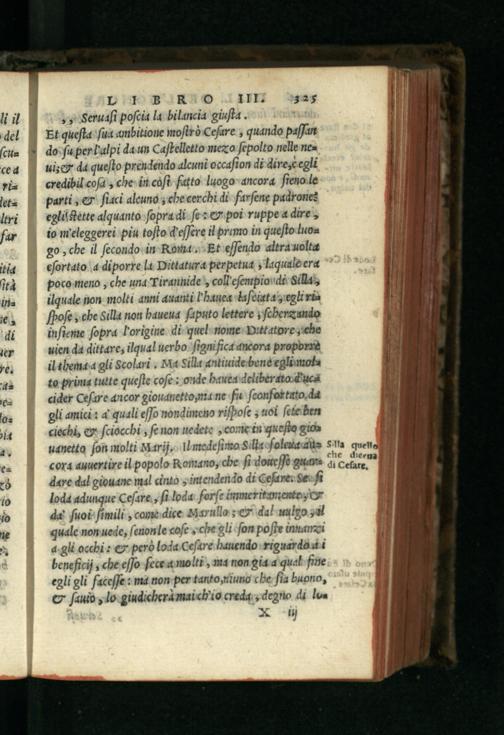 LIBRO III. 325
,, Seruasi poscia la bilancia giusta.
Et questa sua ambitione mostrò Cesare, quando passan
do su per l'alpi da un Castelletto mezo sepolto nelle ne-
ui; & da questo prendendo alcuni occasion di dire, è egli
credibil cosa, che in così fatto luogo ancora sieno le
parti, & siaci alcuno, che cerchi di farsene padrone?
egli stette alquanto sopra di se: & poi ruppe a dire,
io m'eleggerei piu tosto d'essere il primo in questo luo-
go, che il secondo in Roma. Et essendo altra uolta
esortato a diporre la Dittatura perpetua, laquale era
poco meno, che una Tirannide, coll'esempio di Silla,
ilquale non molti anni auanti l'hauea lasciata, egli ri-
spose, che Silla non haueua saputo lettere, scherzando
insieme sopra l'origine di quel nome Dittatore, che
uien da dittare, ilqual uerbo significa ancora proporre
il thema a gli Scolari. Ma Silla antiuide bene egli mol-
to prima tutte queste cose: onde hauea deliberato d'uc-
cider Cesare ancor giouanetto, ma ne fu sconfortato da
gli amici: a' quali esso nondimeno rispose, uoi sete ben
ciechi, & sciocchi, se non uedete, come in questo gio-
uanetto son molti Marij. il medesimo Silla soleua an-
cora auuertire il popolo Romano, che si douesse guar-
dare dal giouane mal cinto, intendendo di Cesare. Se si
loda adunque Cesare, si loda forse immeritamente, &
da' suoi simili, come dice Marullo; & dal uulgo, il
quale non uede, senon le cose, che gli son poste innanzi
a gli occhi: & però loda Cesare hauendo riguardo a i
beneficij, che esso fece a molti, ma non gia a qual fine
egli gli facesse: ma non per tanto, niuno che sia buono,
& sauio, lo giudicherà mai ch'io creda, degno di lo-
X iij
Silla quello
che diceua
di Cesare.